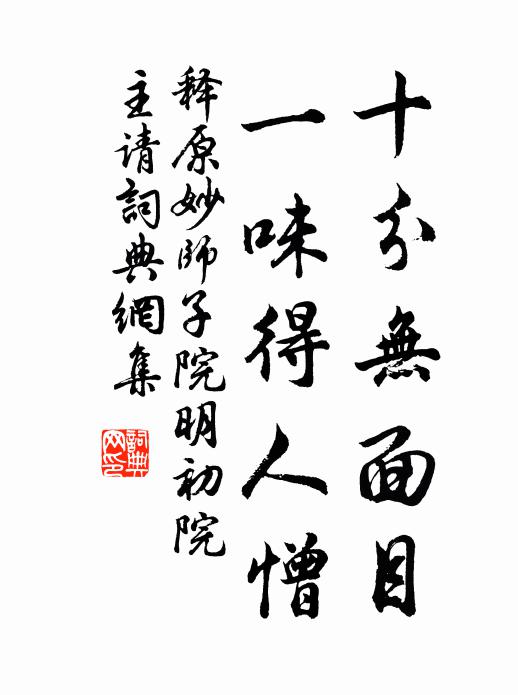 十分無面目
一味得人憎
释原妙師子院明初院
主请詞典網集
詞典
网印